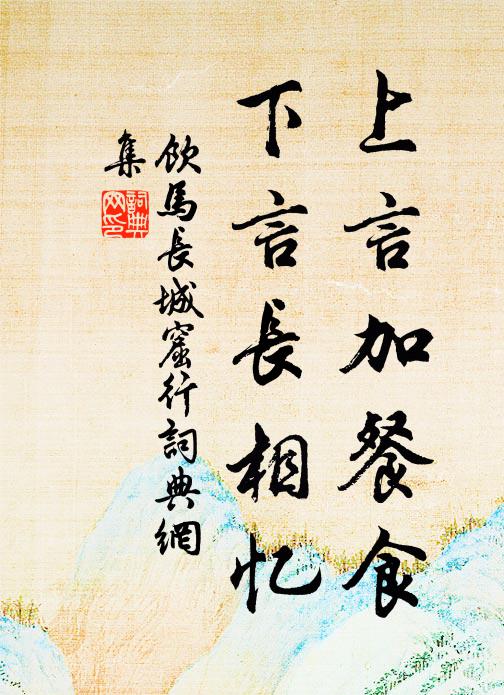 上言加餐食
下言長相忆
飲馬長城窟行詞典網
集
詞典
网印